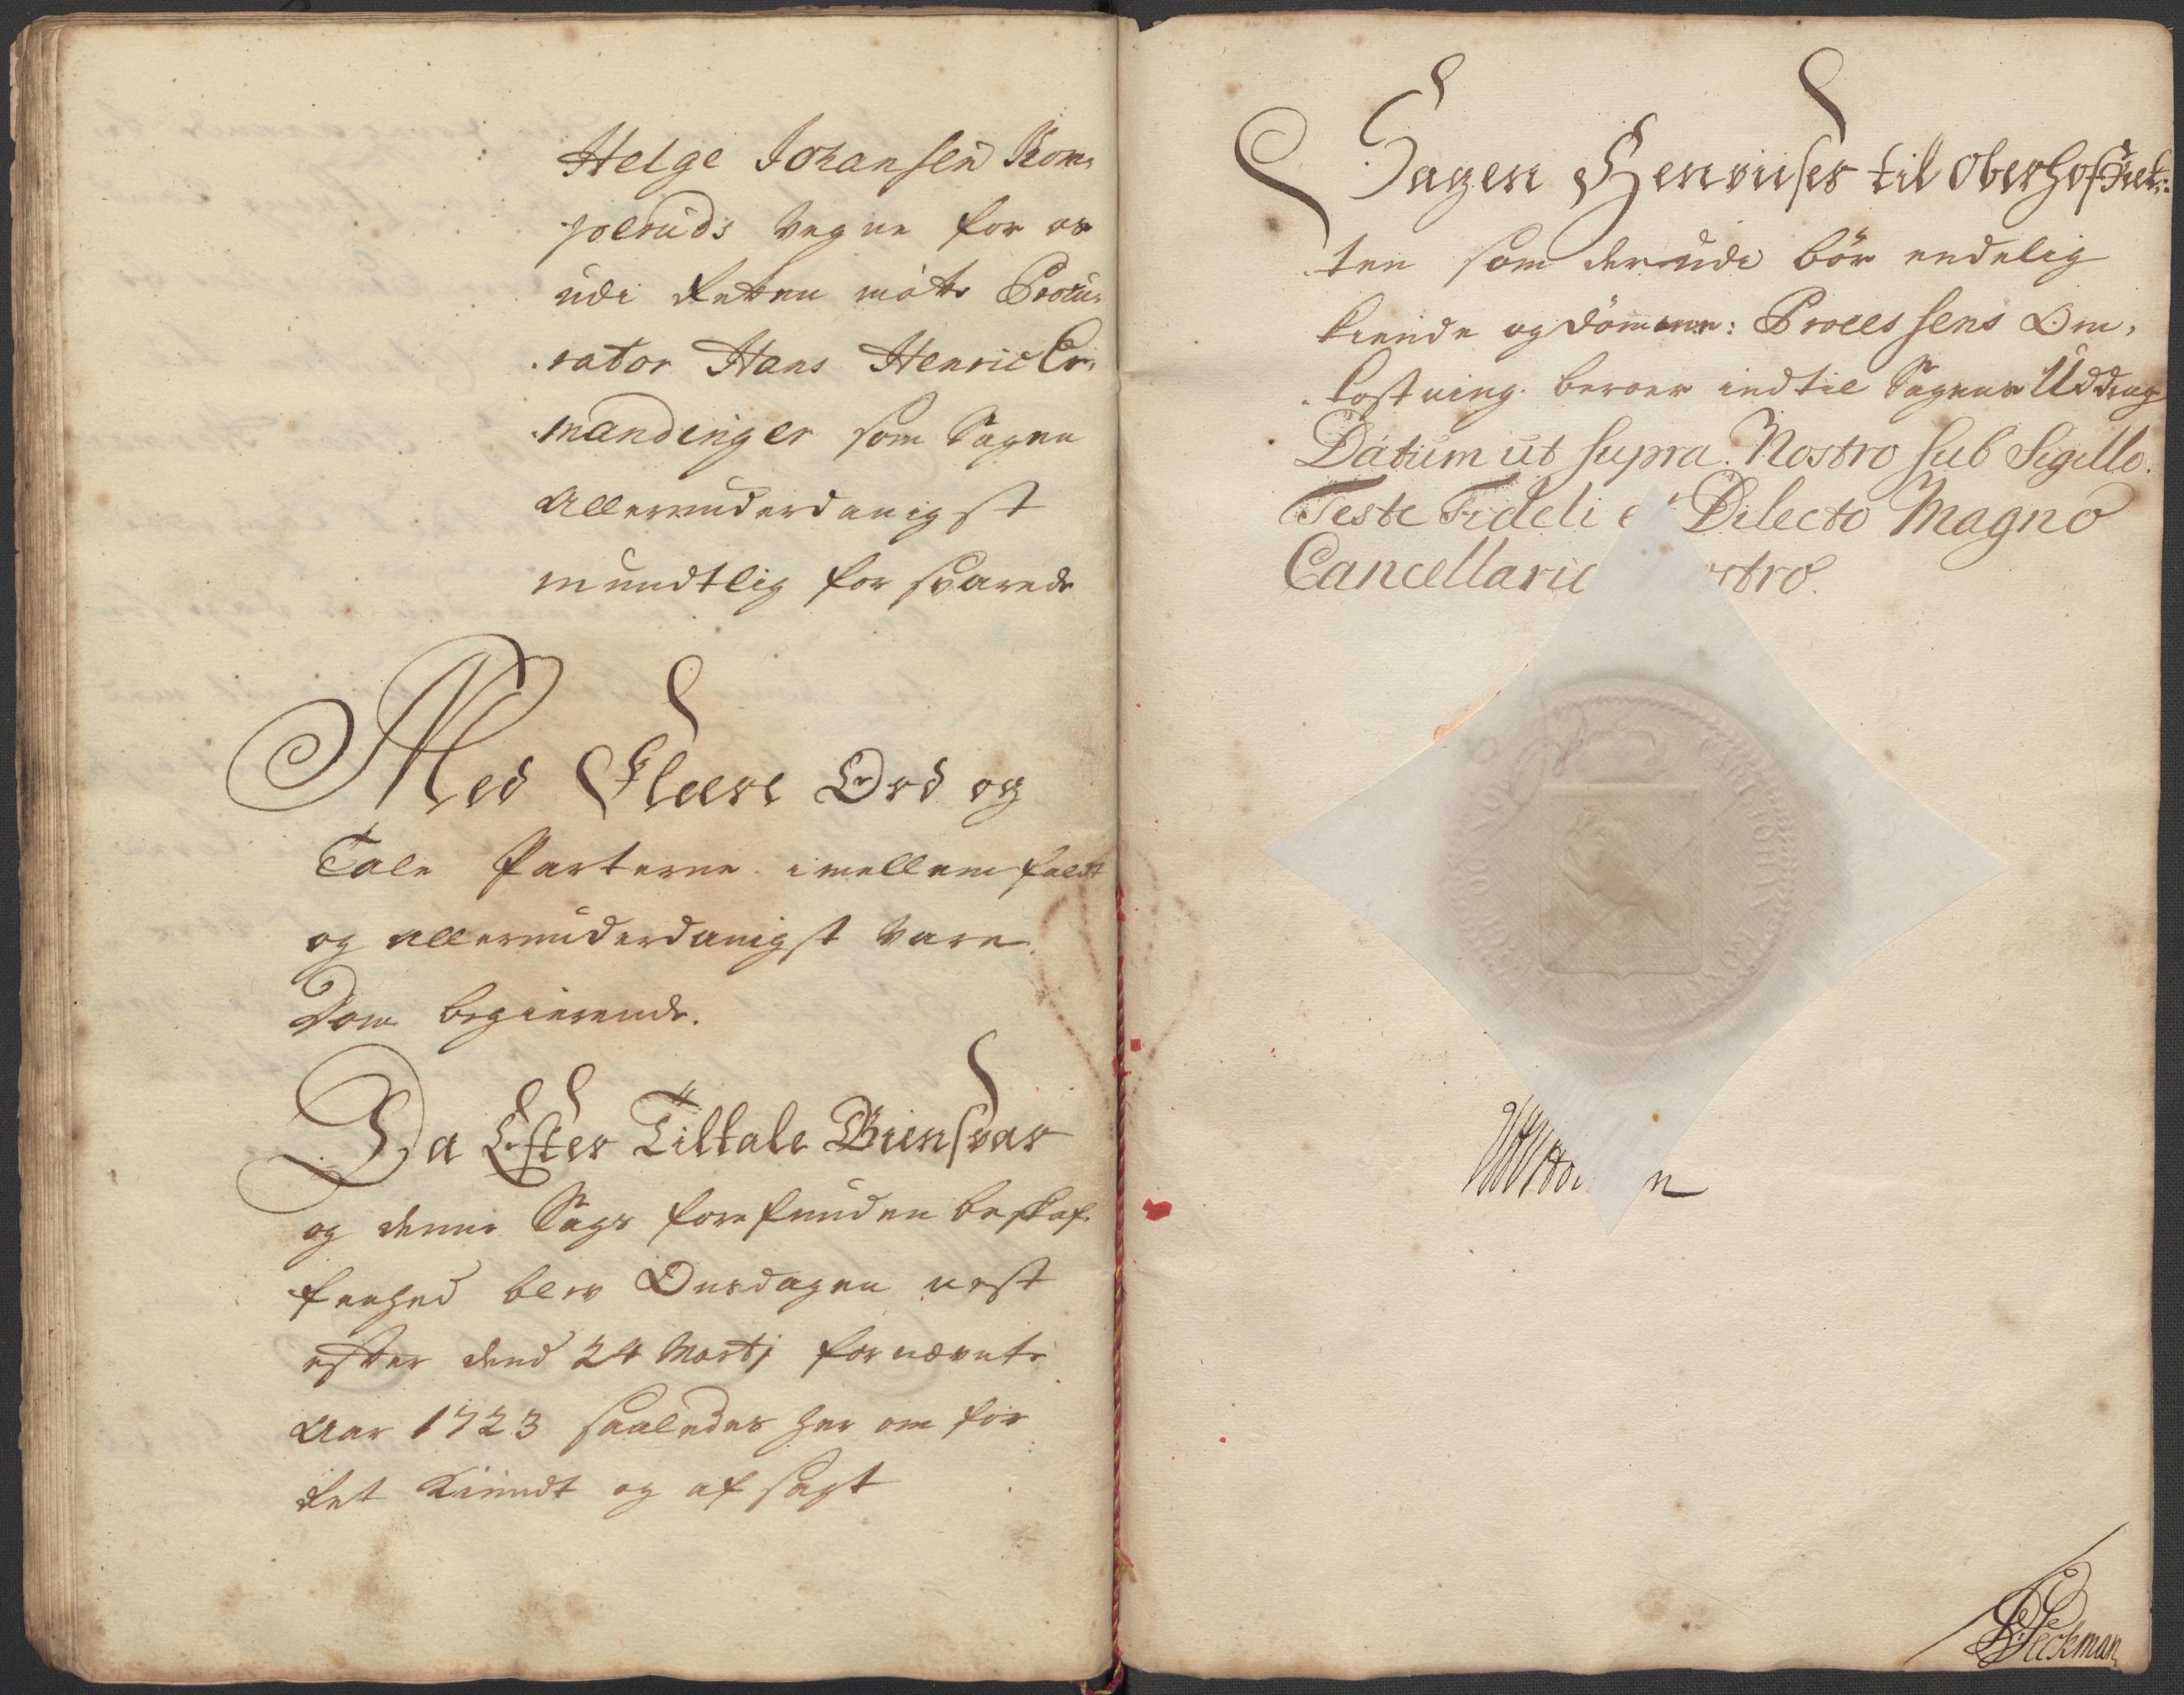 Helge Johansen Rom-
pelruds vegne for os
udi Retten mötte Procu-
rator Hans Henric Er-
mandinger som Sagen
Allerunderdanigst
mundtlig forsvarede
Med Fleere Ord og
Tale Parterne imellem faldt
og allerunderdanigst vare
Dom begierende.
Da Efter Tiltale Giensvar
og denne Sags forefunden beskaf-
fenhed blev Onsdagen nest
efter dend 24 Martj fornævnte
Aar 1723 saaledes her om for
Ret Kiendt og afsagt
Sagen Henviises til OberhofRet-
ten som derudi bör endelig
kiende og dömme: Processens Om-
kostning beroer indtil Sagens Uddrag
Datum ut supra. Nostro sub Sigillo.
Teste Fideli et Dilecto Magno
Cancellario Nostro.